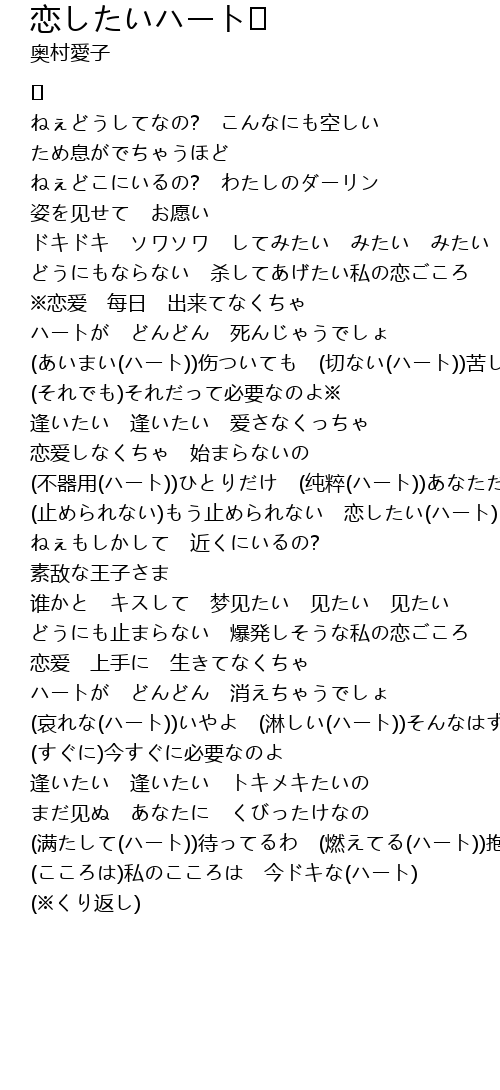 恋したいハート▯
奥村愛子
▯
ねぇどうしてなの?　こんなにも空しい
ため息がでちゃうほど
ねぇどこにいるの?　わたしのダーリン
姿を见せて　お愿い
ドキドキ　ソワソワ　してみたい　みたい　みたい
どうにもならない　杀してあげたい私の恋ごころ
※恋爱　每日　出来てなくちゃ
ハートが　どんどん　死んじゃうでしょ
(あいまい(ハート))伤ついても　(切ない(ハート))苦し
(それでも)それだって必要なのよ※
逢いたい　逢いたい　爱さなくっちゃ
恋爱しなくちゃ　始まらないの
(不器用(ハート))ひとりだけ　(纯粹(ハート))あなたた
(止められない)もう止められない　恋したい(ハート)
ねぇもしかして　近くにいるの?
素敌な王子さま
谁かと　キスして　梦见たい　见たい　见たい
どうにも止まらない　爆発しそうな私の恋ごころ
恋爱　上手に　生きてなくちゃ
ハートが　どんどん　消えちゃうでしょ
(哀れな(ハート))いやよ　(淋しい(ハート))そんなはず
(すぐに)今すぐに必要なのよ
逢いたい　逢いたい　トキメキたいの
まだ见ぬ　あなたに　くびったけなの
(满たして(ハート))待ってるわ　(燃えてる(ハート))抱
(こころは)私のこころは　今ドキな(ハート)
(※くり返し)